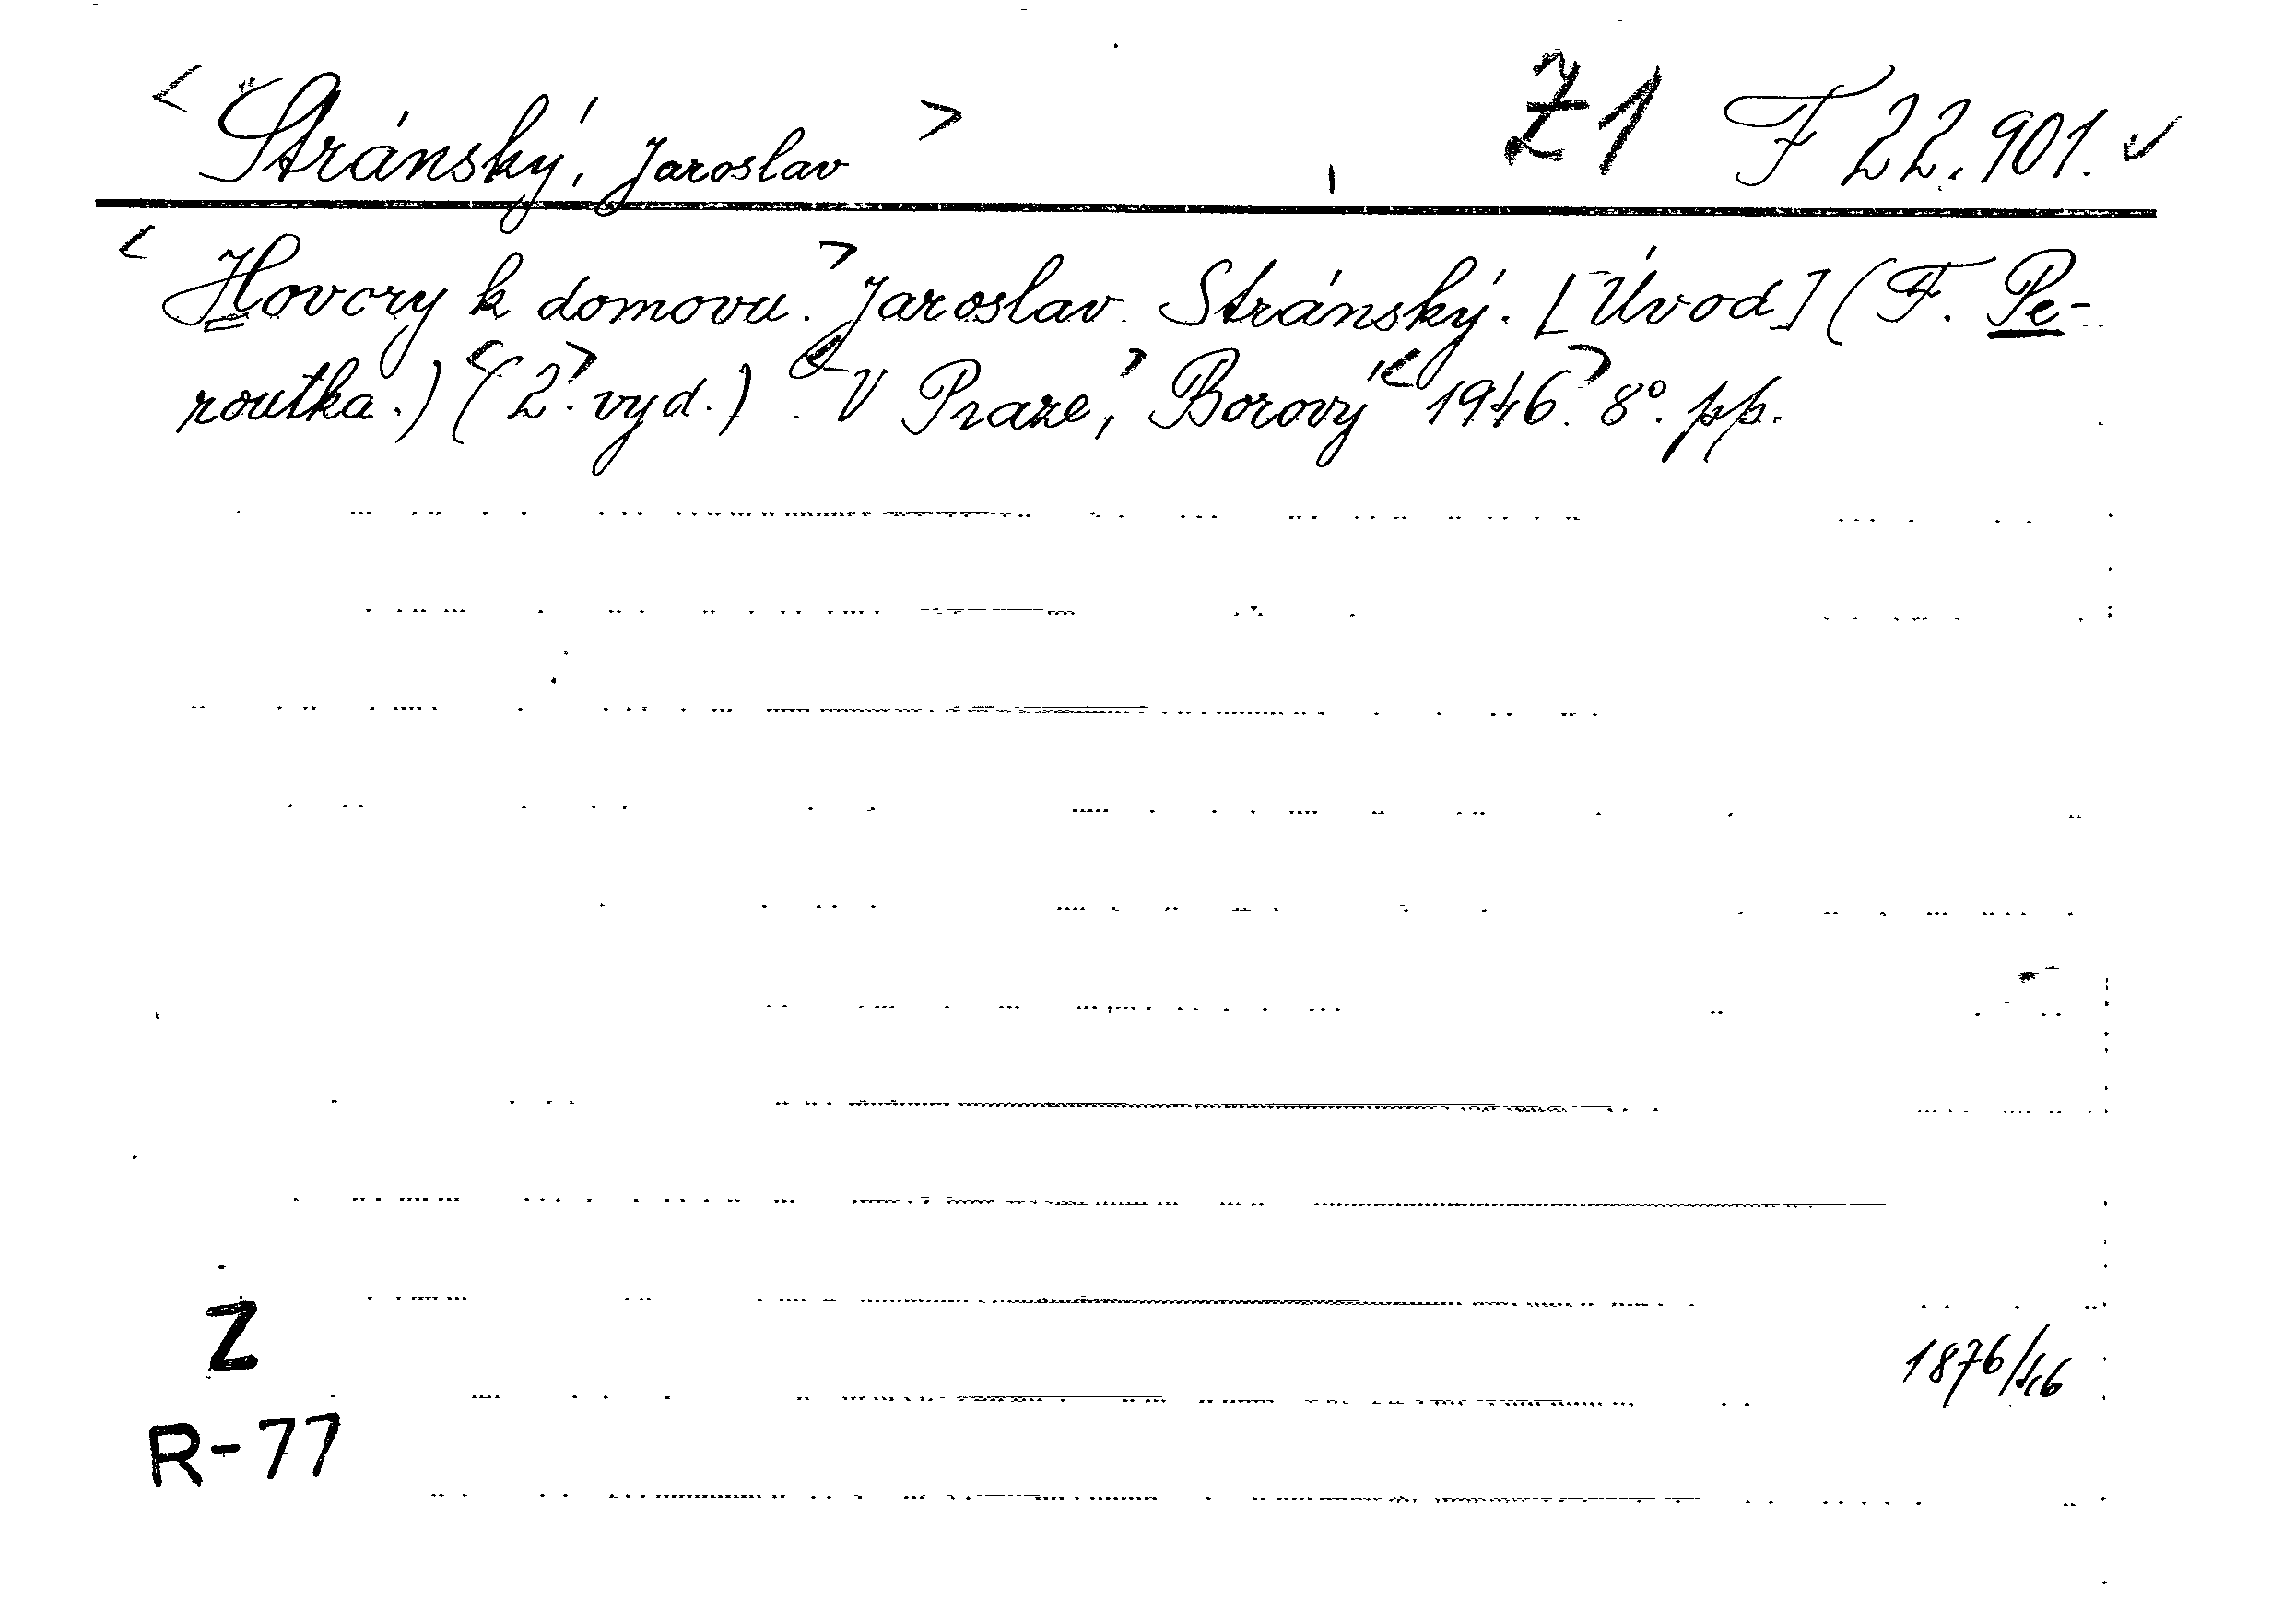 < Stránský, Jaroslav > Z1 F 22.901. ✓
< Hovory k domovu.> Jaroslav Stránský. [Úvod] (F. Pe-
routka.) (<2.> vyd.) <V Praze,> Borový <1946.> 8°. pp.
Z
1876/46
R-77